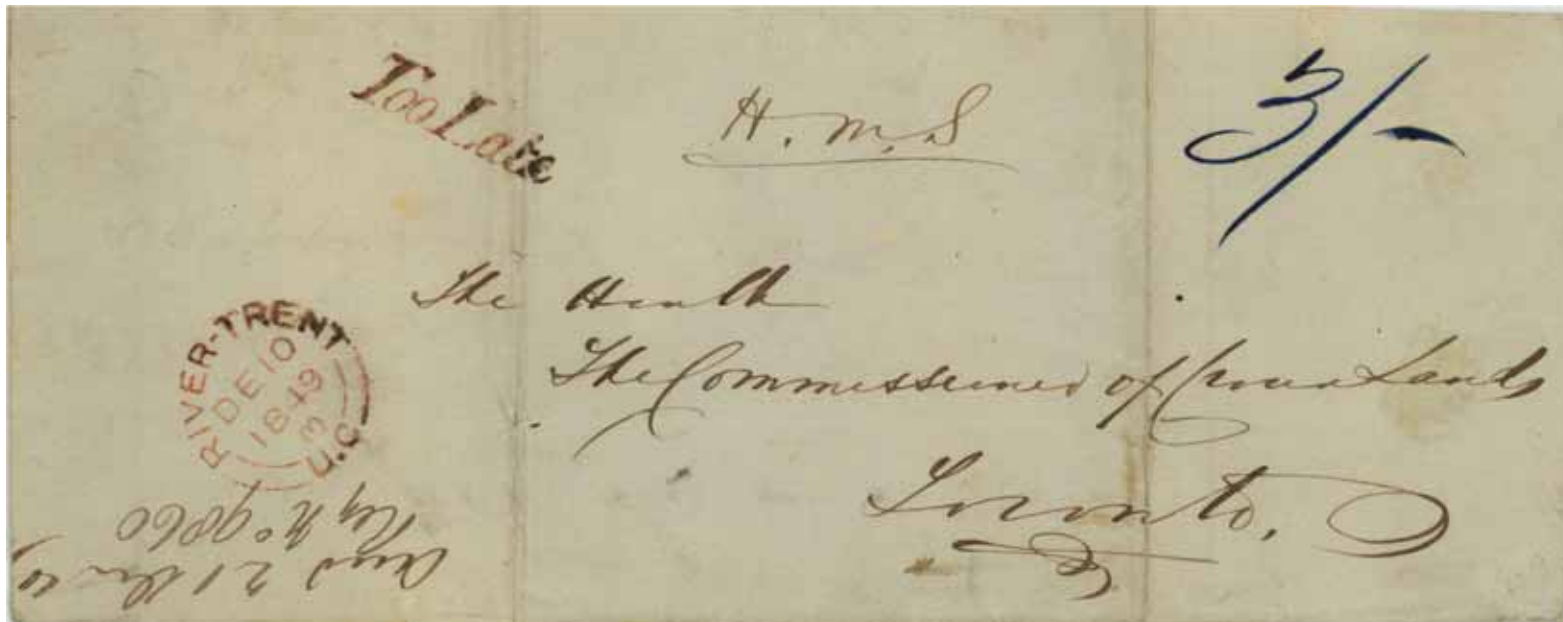 Too Late
H. M. S
3/-
The Honble
The Commissioner of Crown Lands
Toronto.
RIVER-TRENT
DE 10
1849
U.C
Reg No 9860
21